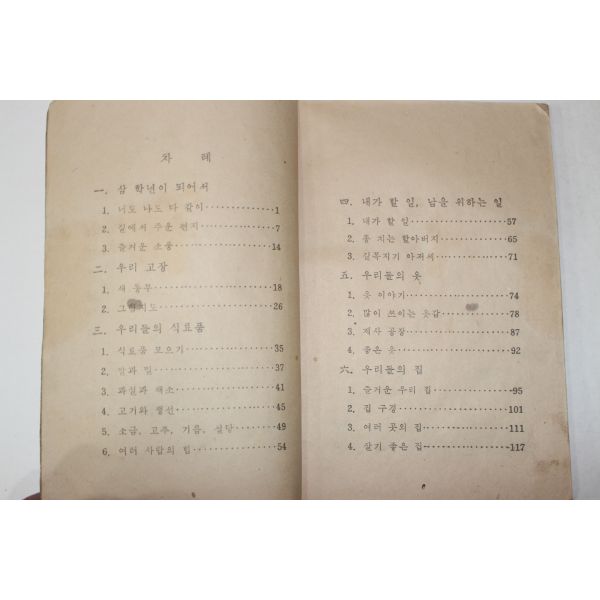 차 례
一. 삼 학년이 되어서
1. 너도 나도 다 같이 1
2. 길에서 주운 편지 7
3. 즐거운 소풍 14
二. 우리 고장
1. 새 동무 18
2. 그림지도 26
三. 우리들의 식료품
1. 식료품 모으기 35
2. 쌀과 밀 37
3. 과실과 채소 41
4. 고기와 생선 45
5. 소금, 고추, 기름, 설탕 49
6. 여러 사람의 힘 54
四. 내가 할 일, 남을 위하는 일
1. 내가 할 일 57
2. 종 치는 할아버지 65
3. 실뭉치기 아저씨 71
五. 우리들의 옷
1. 옷 이야기 74
2. 많이 쓰이는 옷감 78
3. 제사 공장 87
4. 좋은 옷 92
六. 우리들의 집
1. 즐거운 우리 집 95
2. 집 구경 101
3. 여러 곳의 집 111
4. 살기 좋은 집 117